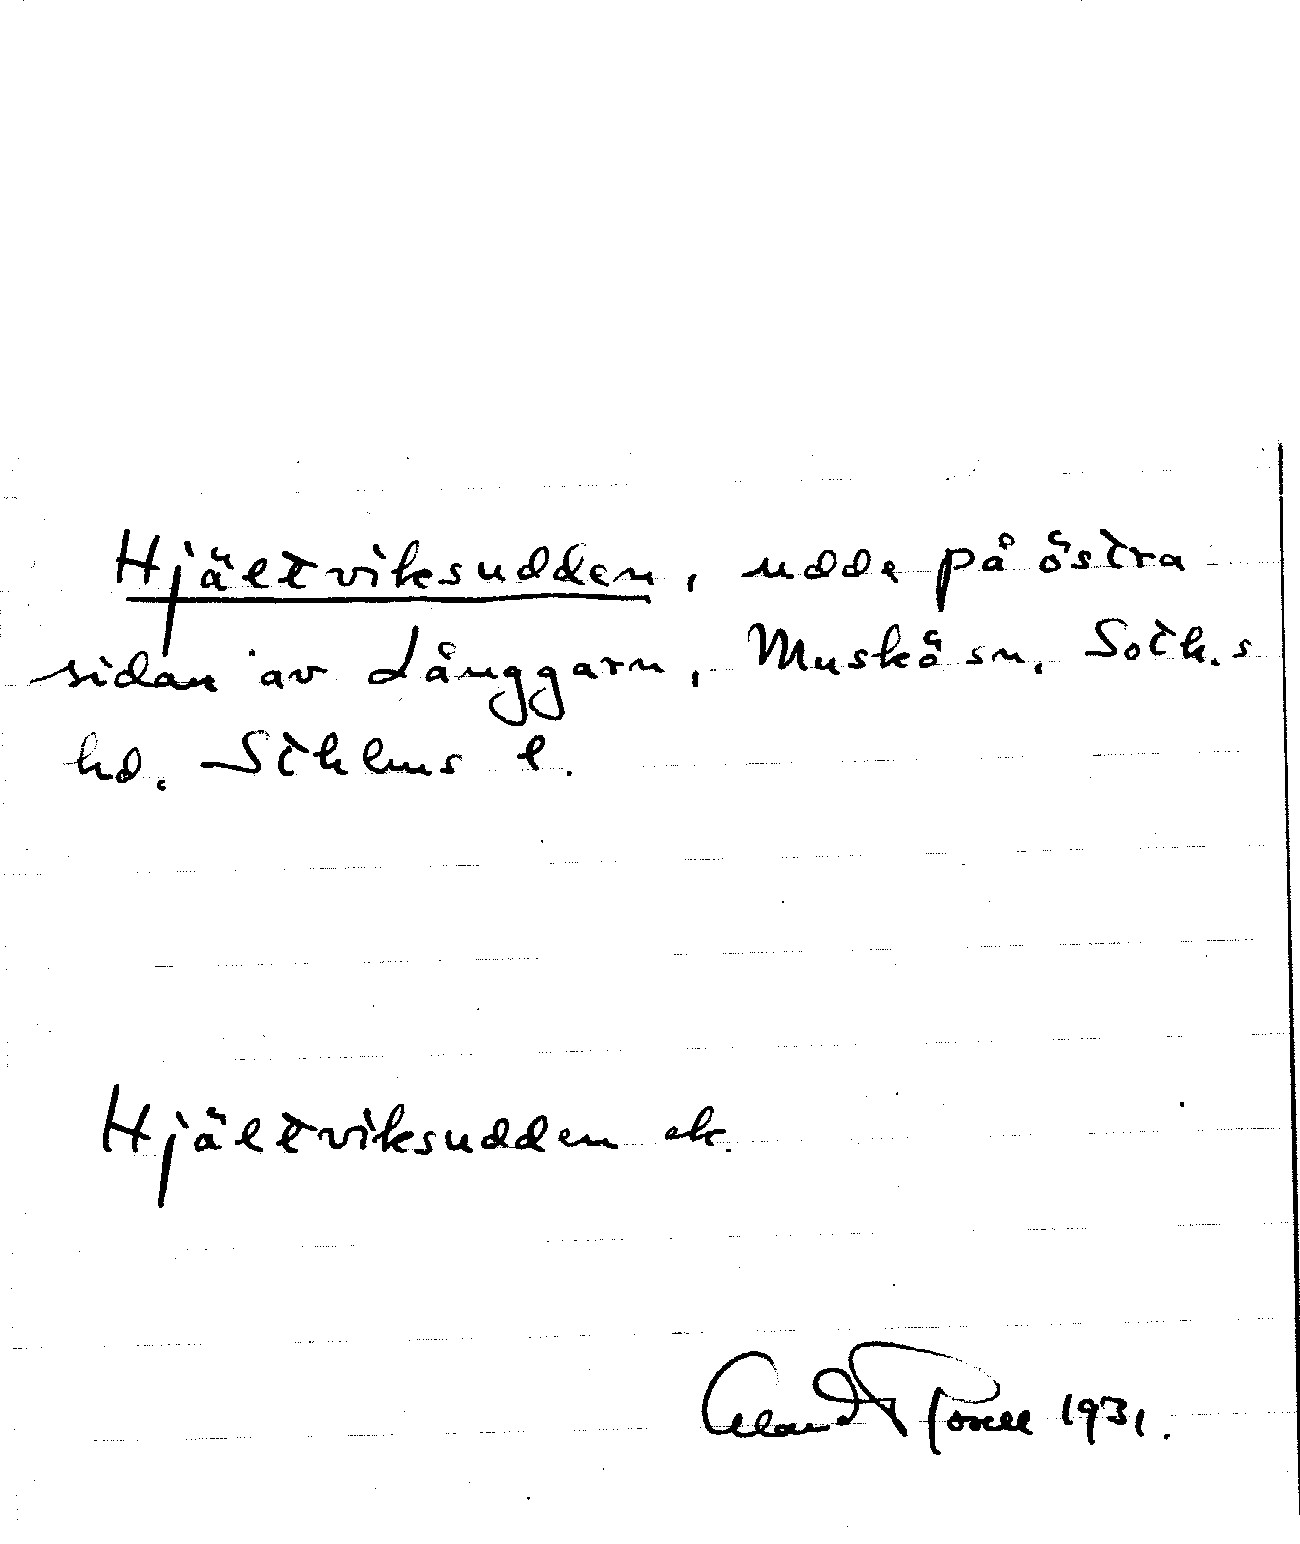 Hjältviksudden, udde på östra
sidan av Långgarn, Muskö sn. Soth.s
hd. Sthlms l.
Hjältviksudden ek.
1931.